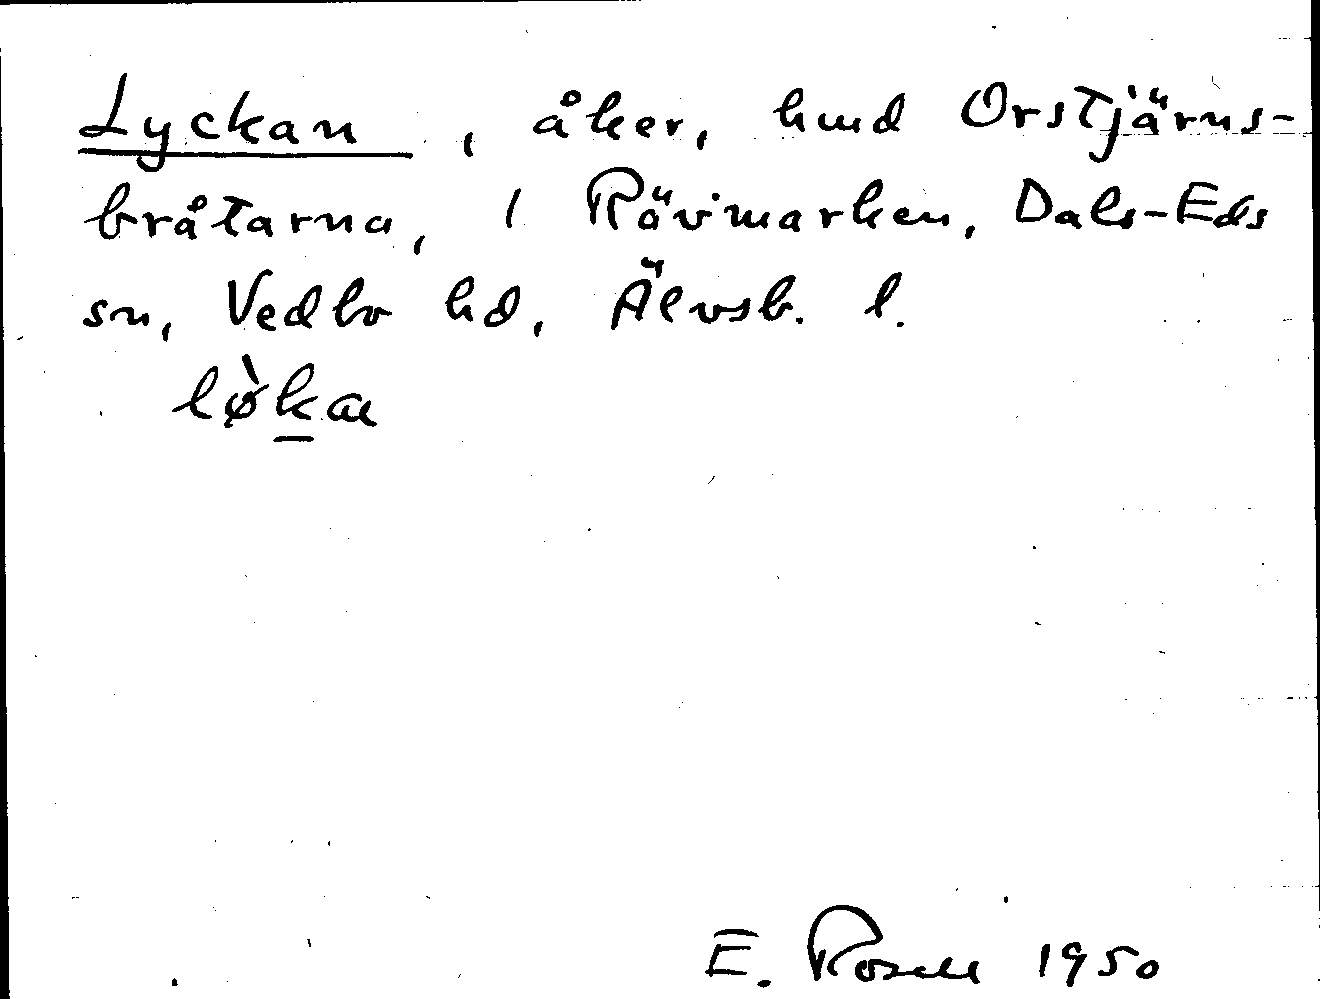 Lyckan, åker, hmd Orstjärns-
bråtarna, 1 Rävmarken, Dals-Eds
sn, Vedbo hd, Älvsb. l.
lø̀k̲a
E. Rosell 1950